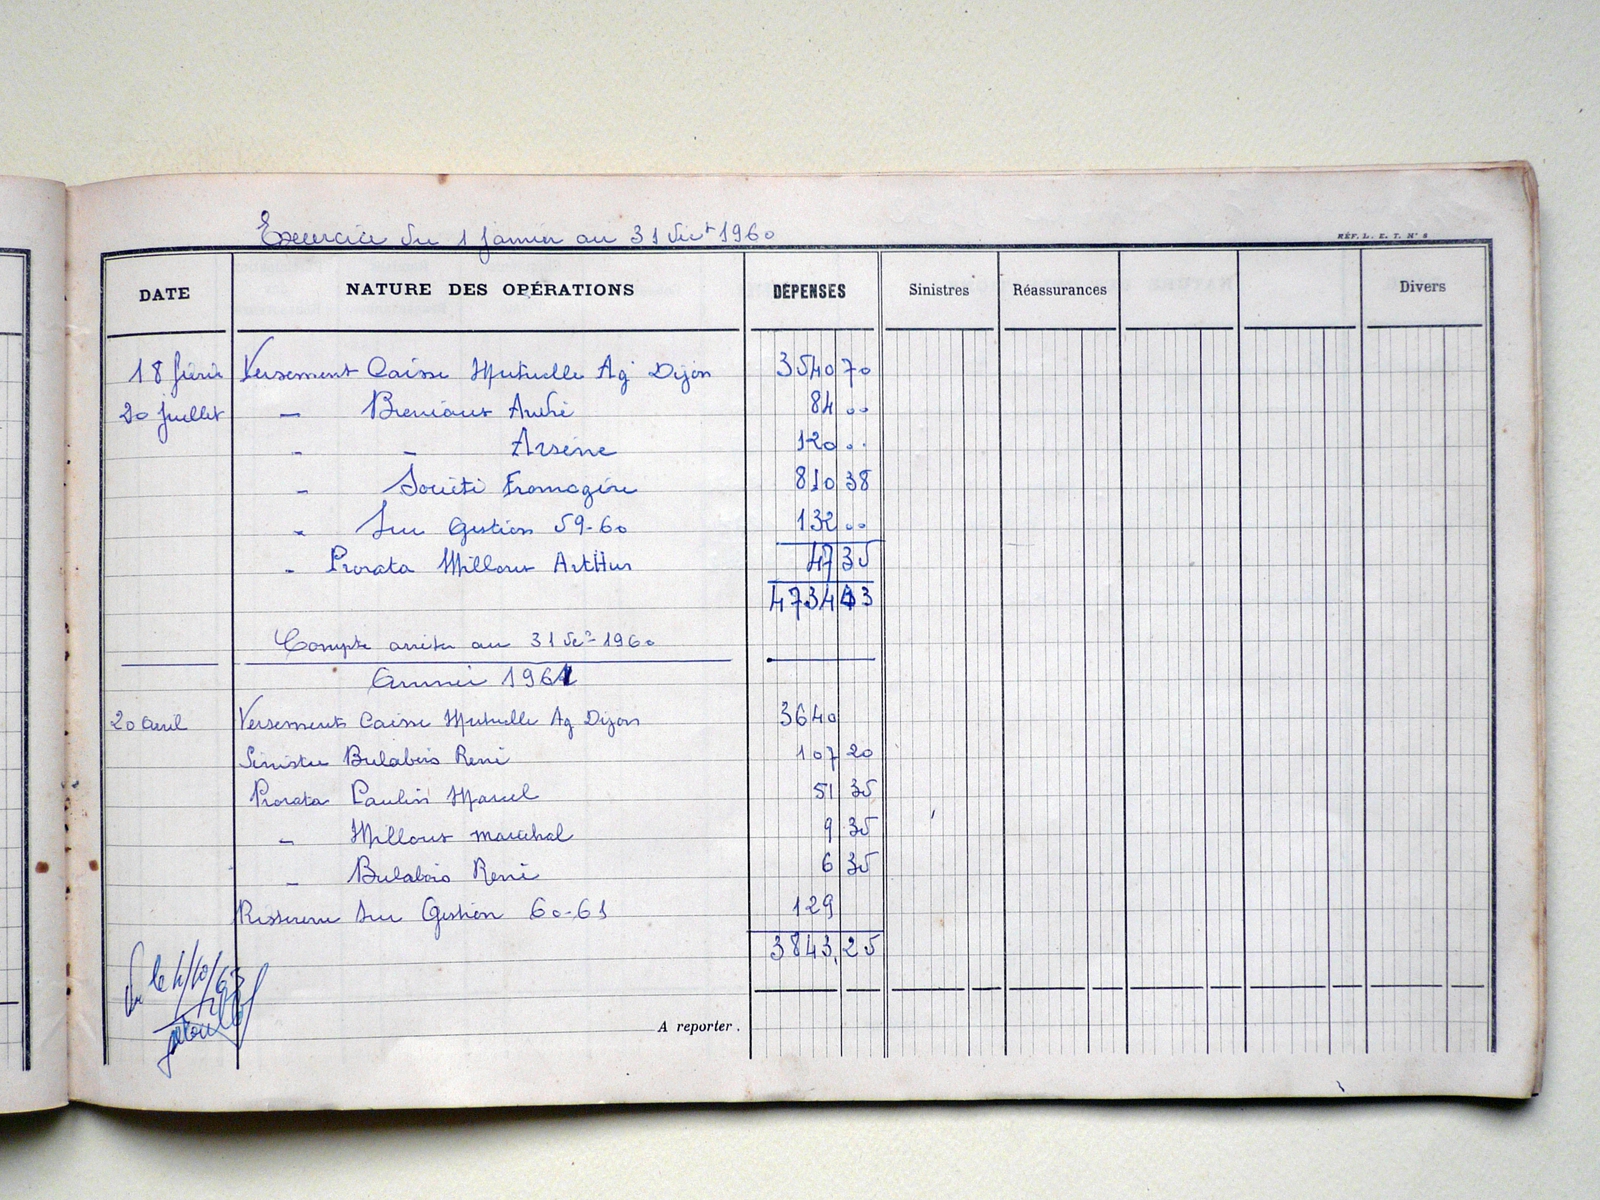 Exercice du 1 janvier au 31 Dect 1960
RÉF. L. E. T. N° 8
DATE NATURE DES OPÉRATIONS DÉPENSES Sinistres Réassurances Divers
18 février Versement Caisse Mutuelle Ag Dijon 3540 70
20 juillet — André 84 ..
- - Arsène 120 ..
- Société Fromagère 810 38
- Sur Gestion 59-60 132 ..
- Prorata Millour Arthur 47 35
4734 43
Compte arrêter au 31 Dec 1960
Année 1961
20 avril Versements Caisse Mutuelle Ag Dijon 3640
Sinistre Bulabois René 107 20
Prorata Paulin Marcel 51 35
- Millour marechal 9 35
- Bulabois René 6 35
sur Gestion 60-61 129
3843,25
Vu le 4/10/63
A reporter .